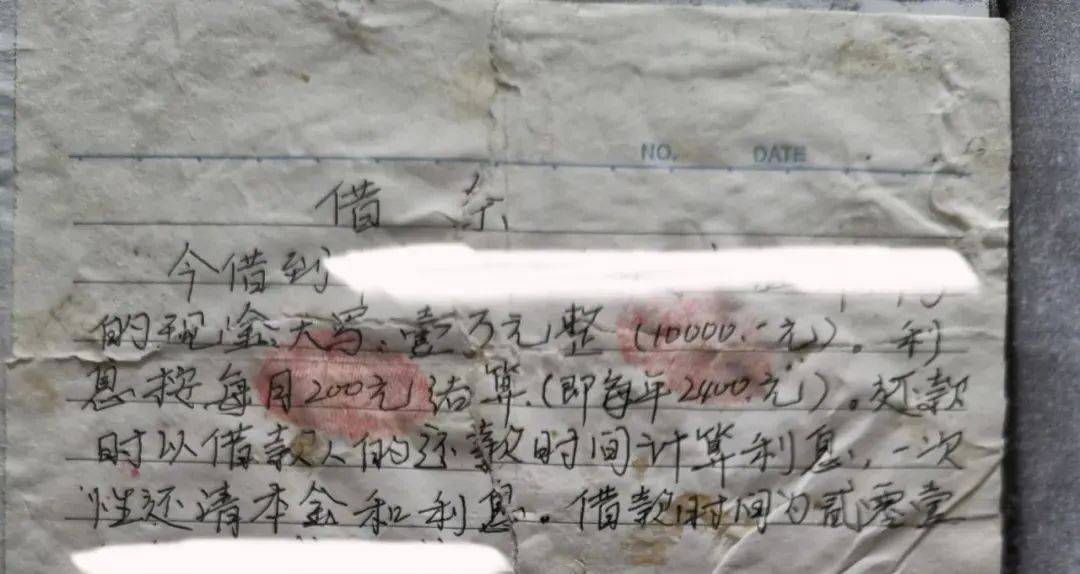 NO. DATE
借条
今借到
的现金大写:壹万元整(10000.-元)。利
息按每月200元结算(即每年2400.元)。还款
时以借款人的还款时间计算利息,一次
性还清本金和利息。借款时间为贰零壹